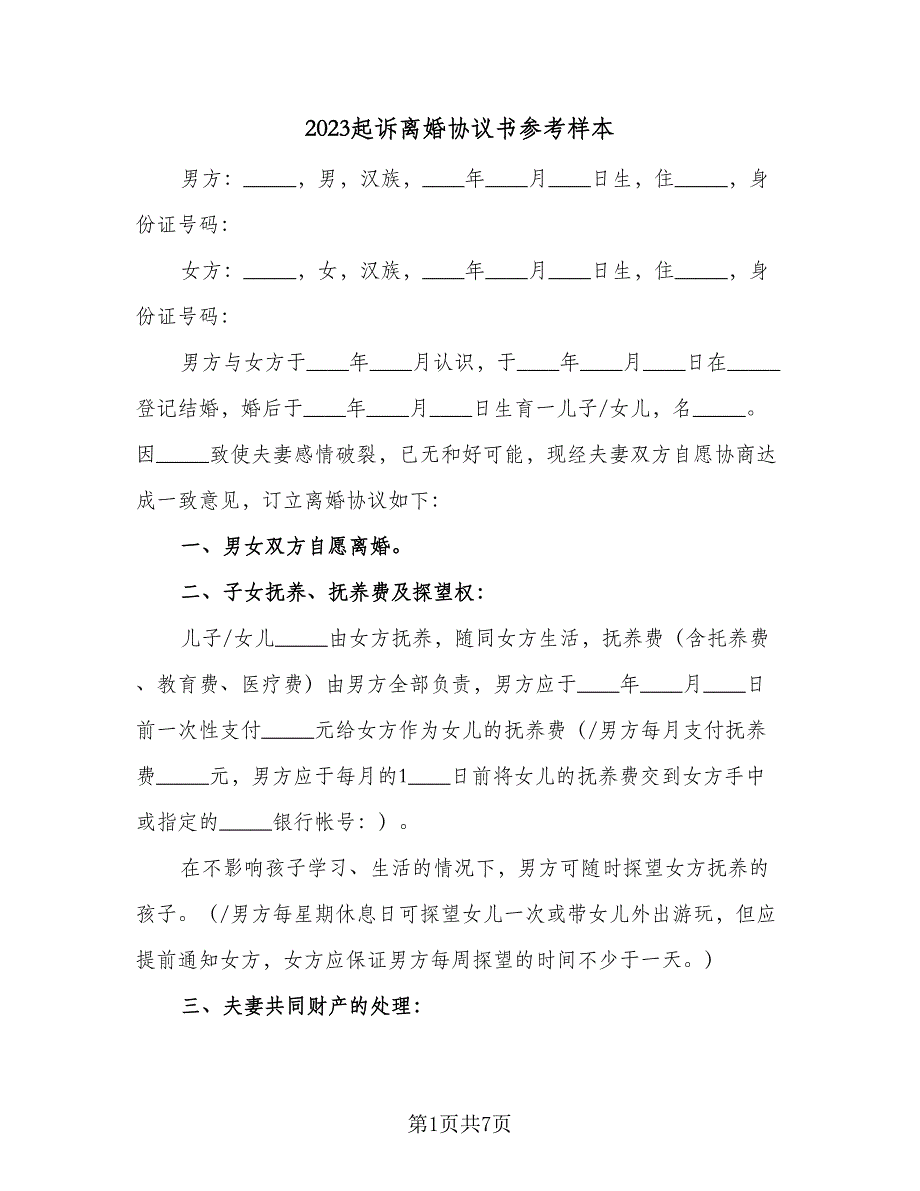 2023起诉离婚协议书参考样本
男方：_____，男，汉族，____年____月____日生，住_____，身
份证号码：
女方：_____，女，汉族，____年____月____日生，住_____，身
份证号码：
男方与女方于____年____月认识，于____年____月____日在_____
登记结婚，婚后于____年____月____日生育一儿子/女儿，名_____。
因_____致使夫妻感情破裂，已无和好可能，现经夫妻双方自愿协商达
成一致意见，订立离婚协议如下：
一、男女双方自愿离婚。
二、子女抚养、抚养费及探望权：
儿子/女儿_____由女方抚养，随同女方生活，抚养费（含托养费
、教育费、医疗费）由男方全部负责，男方应于____年____月____日
前一次性支付_____元给女方作为女儿的抚养费（/男方每月支付抚养
费_____元，男方应于每月的1____日前将女儿的抚养费交到女方手中
或指定的_____银行帐号：）。
在不影响孩子学习、生活的情况下，男方可随时探望女方抚养的
孩子。（/男方每星期休息日可探望女儿一次或带女儿外出游玩，但应
提前通知女方，女方应保证男方每周探望的时间不少于一天。）
三、夫妻共同财产的处理：
第1页共7页